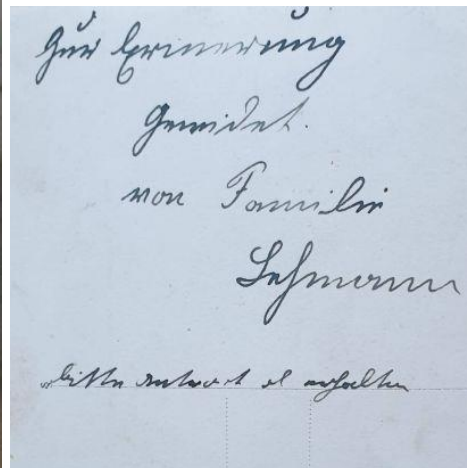 Zur Erinerung
Gewidet.
von Familie
Lehmann
bitte antwort ob erhalten